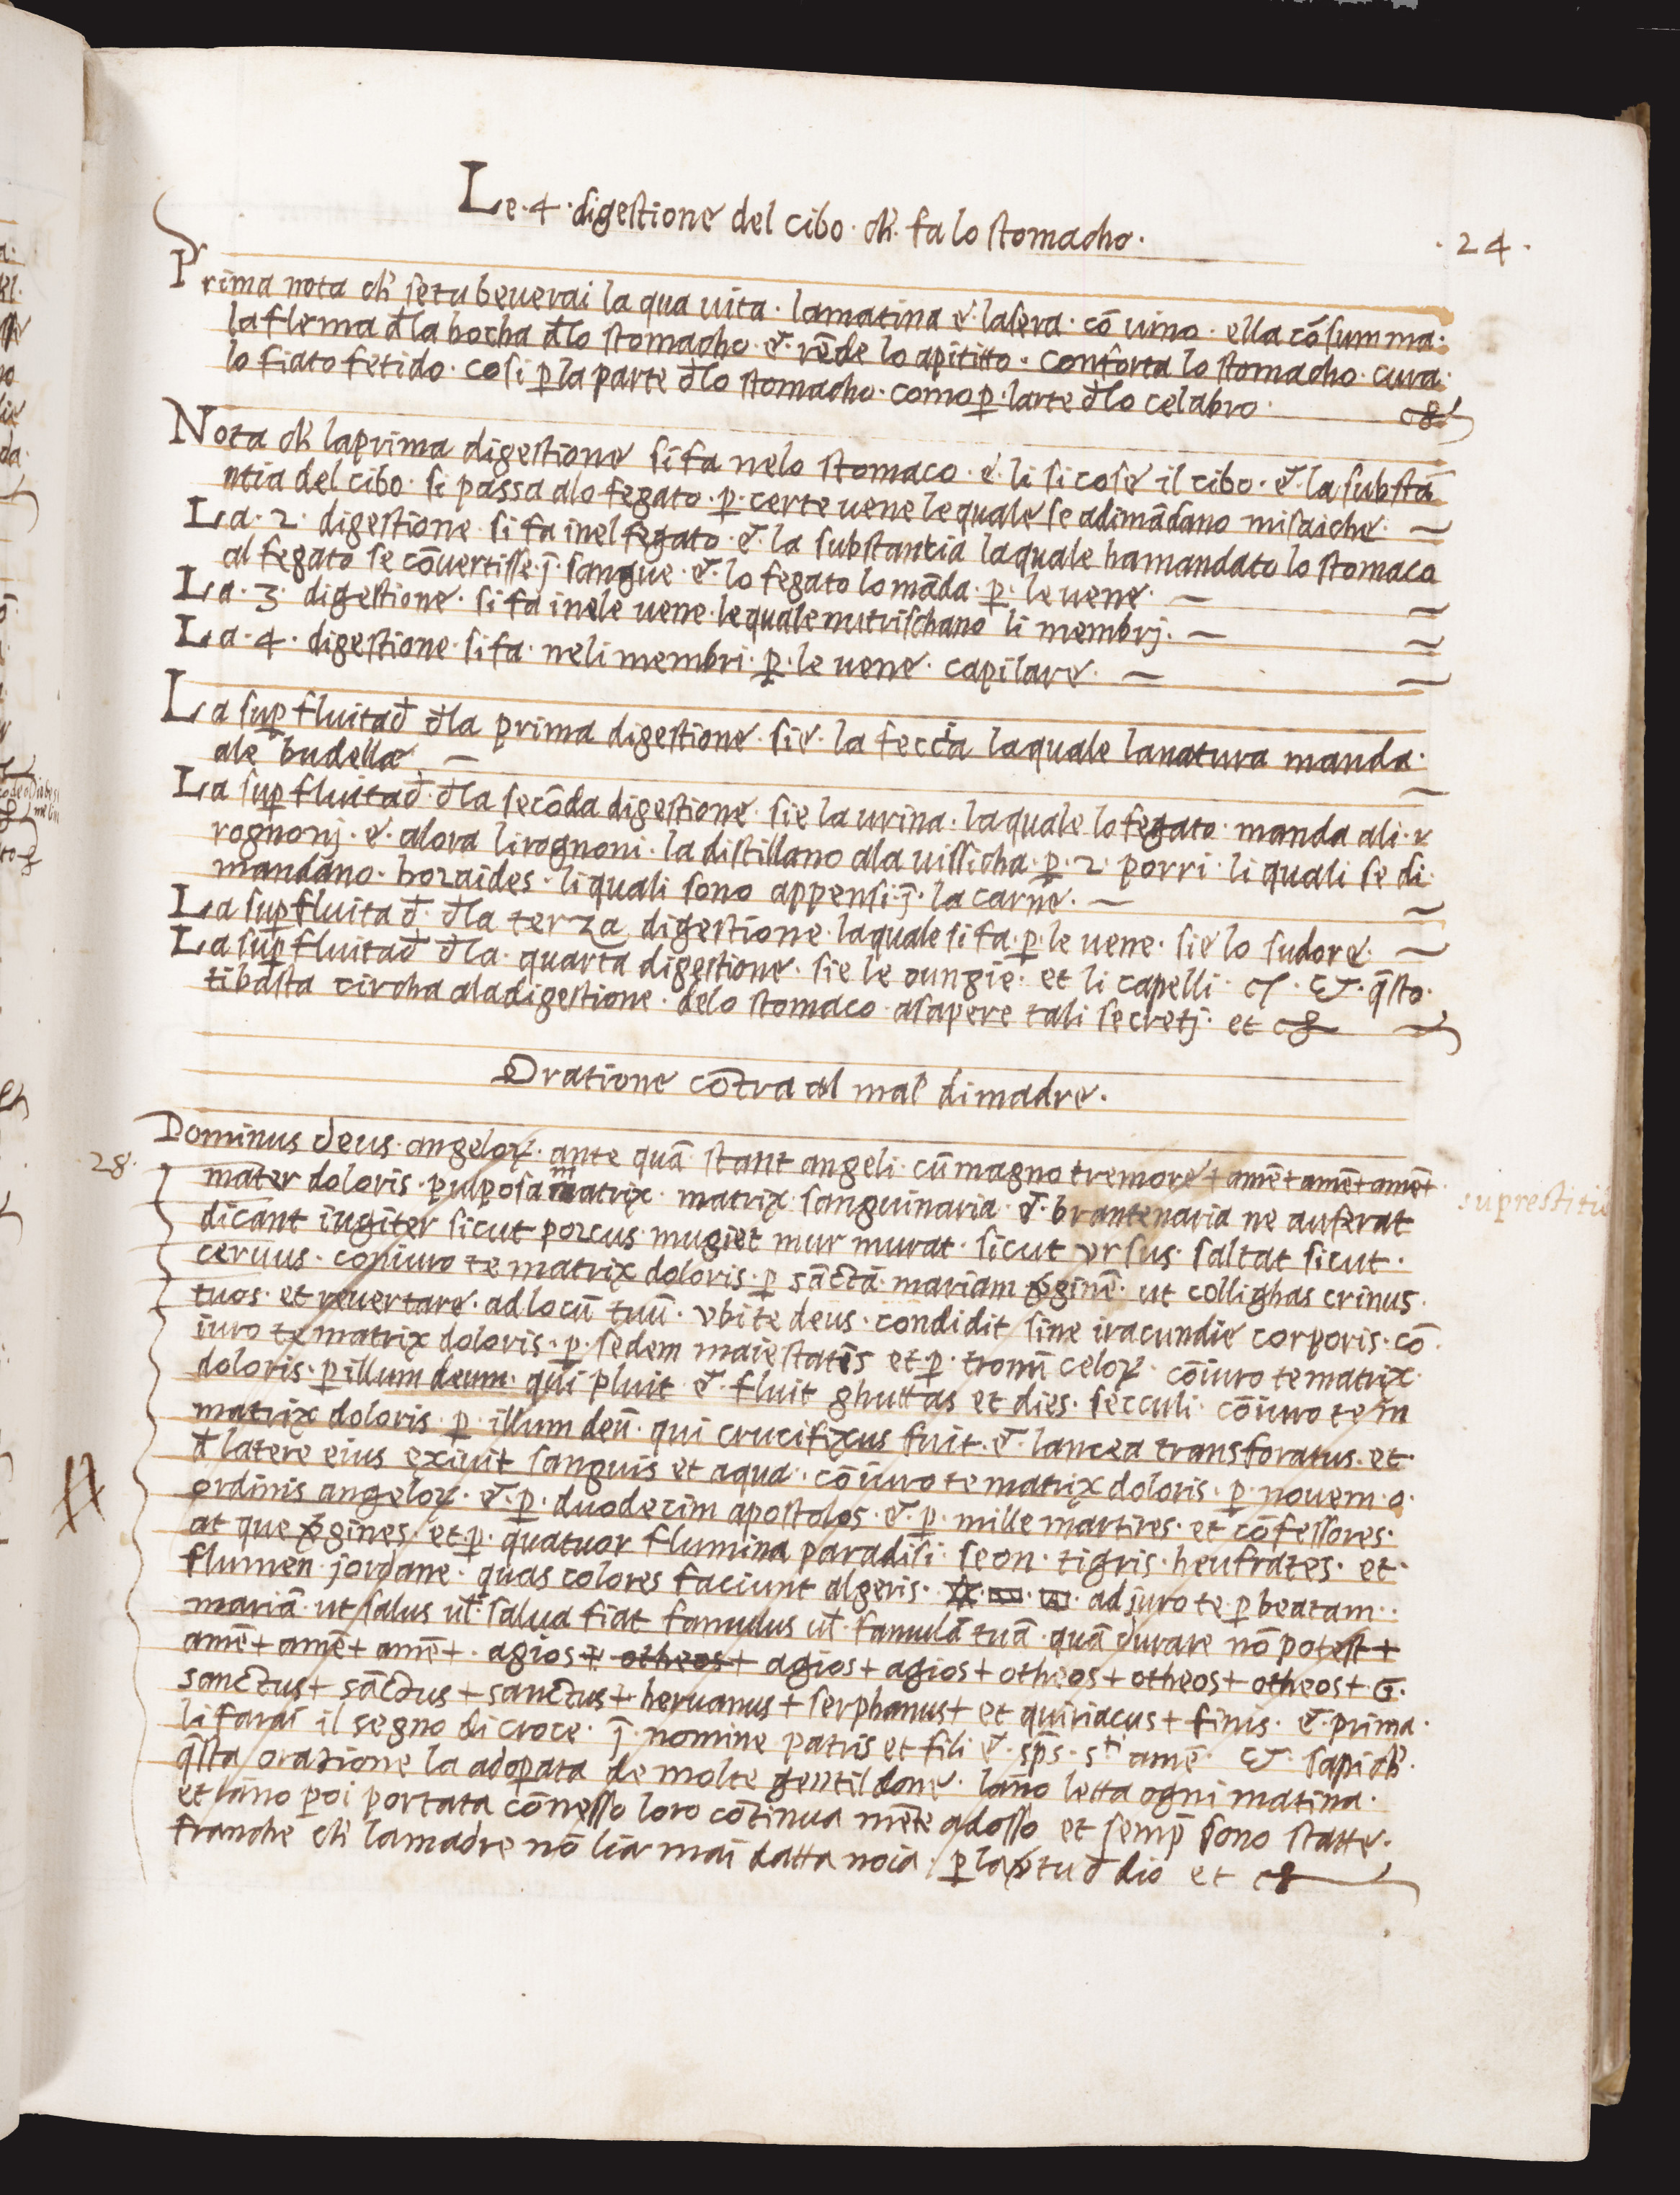 Le · 4 · digestione del cibo · ch̄ · fa lo stomacho ·
· 24 ·
Prima nota ch̄ se tu beuerai la qua uita · lamatina e · lasera · cō uino · ella cōsumma ·
la flema đla bocha đlo stomacho · et · rēde lo apititto · conforta lo stomacho · cura ·
lo fiato fetido · cosi ꝑ la parte đlo stomacho · como ꝑ · larte đlo celabro ·
Nota ch̄ laprima digestione si fa nelo stomaco · e · li si cose il cibo · et · la substā
ntia del cibo · si passa alo fegato · ꝑ · certe uene lequale se adimādano misaiche ·
La · 2 · digestione · si fa inel fegato · et · la substantia laquale hamandato lo stomaco
al fegato se cōuertisse · j̄ · sangue · et · lo fegato lo māda · ꝑ · le uene ·
La · 3 · digestione · si fa inele uene · lequale nutrischano li membrj ·
La · 4 · digestione · si fa · neli membri · ꝑ · le uene · capilare ·
La suꝑfluitađ đla prima digestione · sie · la feccia laquale lanatura manda ·
ale budella
La suꝑfluitađ · đla secōda digestione · sie la urina · laquale lo fegato · manda ali · r
rognonj · e · alora li rognoni · la distillano ala uissicha · ꝑ · 2 · porri · li quali se di ·
mandano · horaides · li quali sono appensi · j̄ · la carne ·
La suꝑfluitađ · đla terza digestione · laquale si fa · ꝑ · le uene · sie lo sudore ·
La suꝑfluitađ đla · quarta digestione · sie le oungie · et li capelli · q̄sto ·
tibasta circha aladigestione · delo stomaco · asapere tali secretj · et
Oratione cōtra al mal di madre ·
28 ·
Dominus deus · angeloꝝ · ante quā · stant angeli · cū magno tremore + amē + amē + amē +
mater doloris · pulposa matrix · matrix · sanguinaria · et · brantenaria ne auferat
suprestitio
dicant iugiter sicut porcus mugiet mur murat · sicut vrsus · saltat sicut ·
ceruus · coniuro te matrix doloris · ꝑ sāctā · mariam v̄ginē · ut collighas crinus ·
tuos · et reuertare · ad locū tuū · vbi te deus · condidit sine iracundie corporis · cō ·
iuro te matrix doloris · ꝑ · sedem maiestates et ꝑ · tronū celoꝝ · cōiuro te matrix ·
doloris · ꝑ illum deum · qui pluit et · fluit ghuttas et dies · secculi · cōiuro te m
matrix doloris · ꝑ · illum deū · qui crucifixus fuit · et · lancea transforatus · et ·
đ latere eius exiuit sanguis et aqua · cōiuro te matrix doloris · ꝑ · nouem · o ·
ordinis angeloꝝ · et · ꝑ · duodecim apostolos · et · ꝑ · mille martires · et cōfessores ·
at que v̄gines · et ꝑ · quatuor flumina paradisi · seon · tigris · heufrates · et ·
flumen · jordane · quas colores faciunt algeris · ad juro te · ꝑ beatam ·
mariā · ut salus uł · salua fiat famulus uł · famulā tuā · quā curare nō potest +
amē + amē + amē + · agios + otheos + agios + agios + otheos + otheos + otheos + G ·
sanctus + sāctus + sanctus + heruanus + serphanus + et quiriacus + finis · et · prima ·
li farai il segno di croce · j̄ · nomine patris et fili et · sp̄s · sti amē · sapi ch̄ ·
q̄sta oratione la adoꝑata de molte gentil done · lāno letta ogni matina ·
et lano poi portata cō nesso loro cōtinua mēte adosso et semp̄ sono statte ·
franche ch̄ lamadre nō lia mai datta noia · ꝑ la v̄tu đ dio et